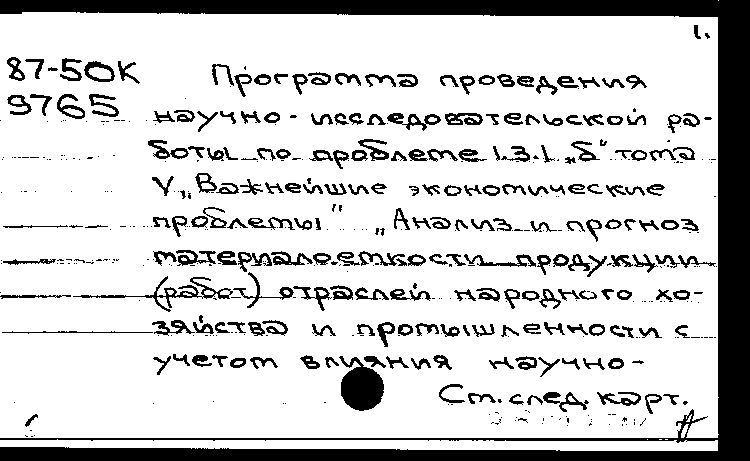 1.
87-50К Программа проведения
9765 научно-исследовательской ра-
боты по проблеме 1.3.1 „б" тома
V „Важнейшие экономические
проблемы" „Анализ и прогноз
материалоемкости продукции
(работ) отраслей народного хо-
зяйства и промышленности с
учетом влияния научно-
См. след. карт.